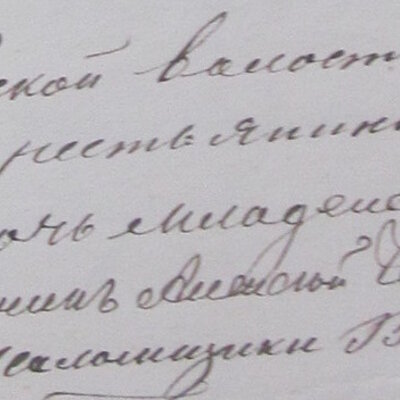 ской волост
рестьянин
очь младене
нинъ Алексей
саломщики В